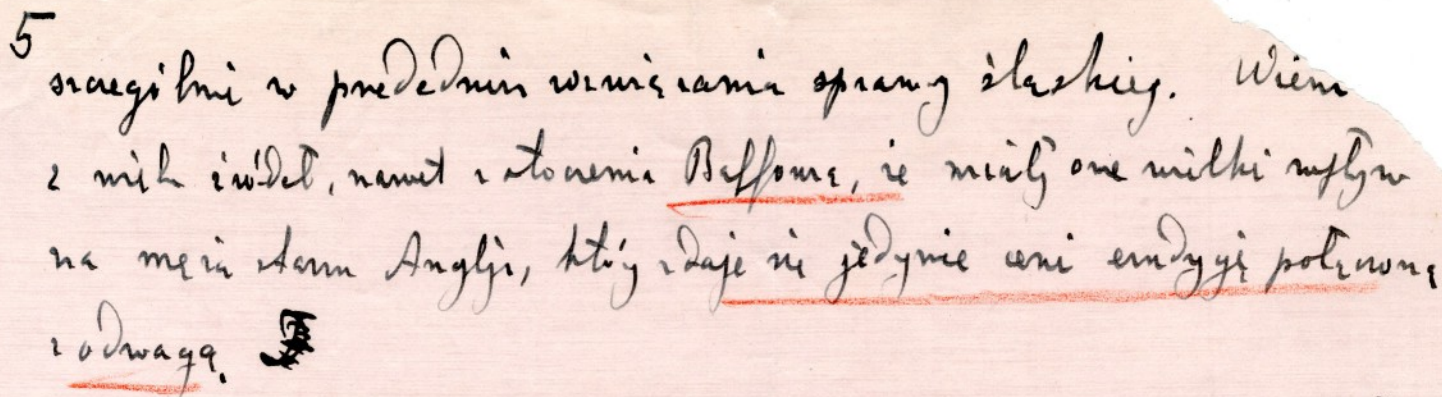 5
szczególnie w przededniu rozwiązania sprawy śląskiej. Wiem
z wielu źródeł, nawet z otoczenia Balfoura, że miały one wielki wpływ
na męża stanu Anglji, który zdaje się jedynie ceni erudycję połączoną
z odwagą.